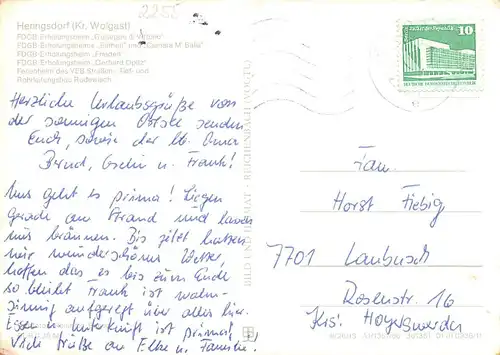 2252
Heringsdorf (Kr. Wolgast)
FDGB-Erholungsheim
FDGB-Erholungsheime „Einheit" und
FDGB-Erholungsheim „Frieden"
FDGB-Erholungsheim
Ferienheim des VEB Straßen-, Tief- und
Rohrleitungsbau
10
Herzliche Urlaubsgrüße von
der sonnigen Ostsee senden
Euch, sowie der lb. Oma
Bernd, Gschn u. Frank!
Uns geht es prima! Liegen
gerade am Strand und lassen
uns bräunen. Bis jetzt hatten
wir wunderschönes Wetter,
hoffen das es bis zum Ende
so bleibt. Frank ist wahn-
sinnig aufgeregt über alles hier.
Essen u. Unterkunft ist prima!
Viele Grüße an Elke u. Familie!
Fam.
Horst Fiebig
7701 Laubusch
Rosenstr. 16
Krs. Hoyerswerda
BILD UND HEIMAT REICHENBACH (VOGTL)